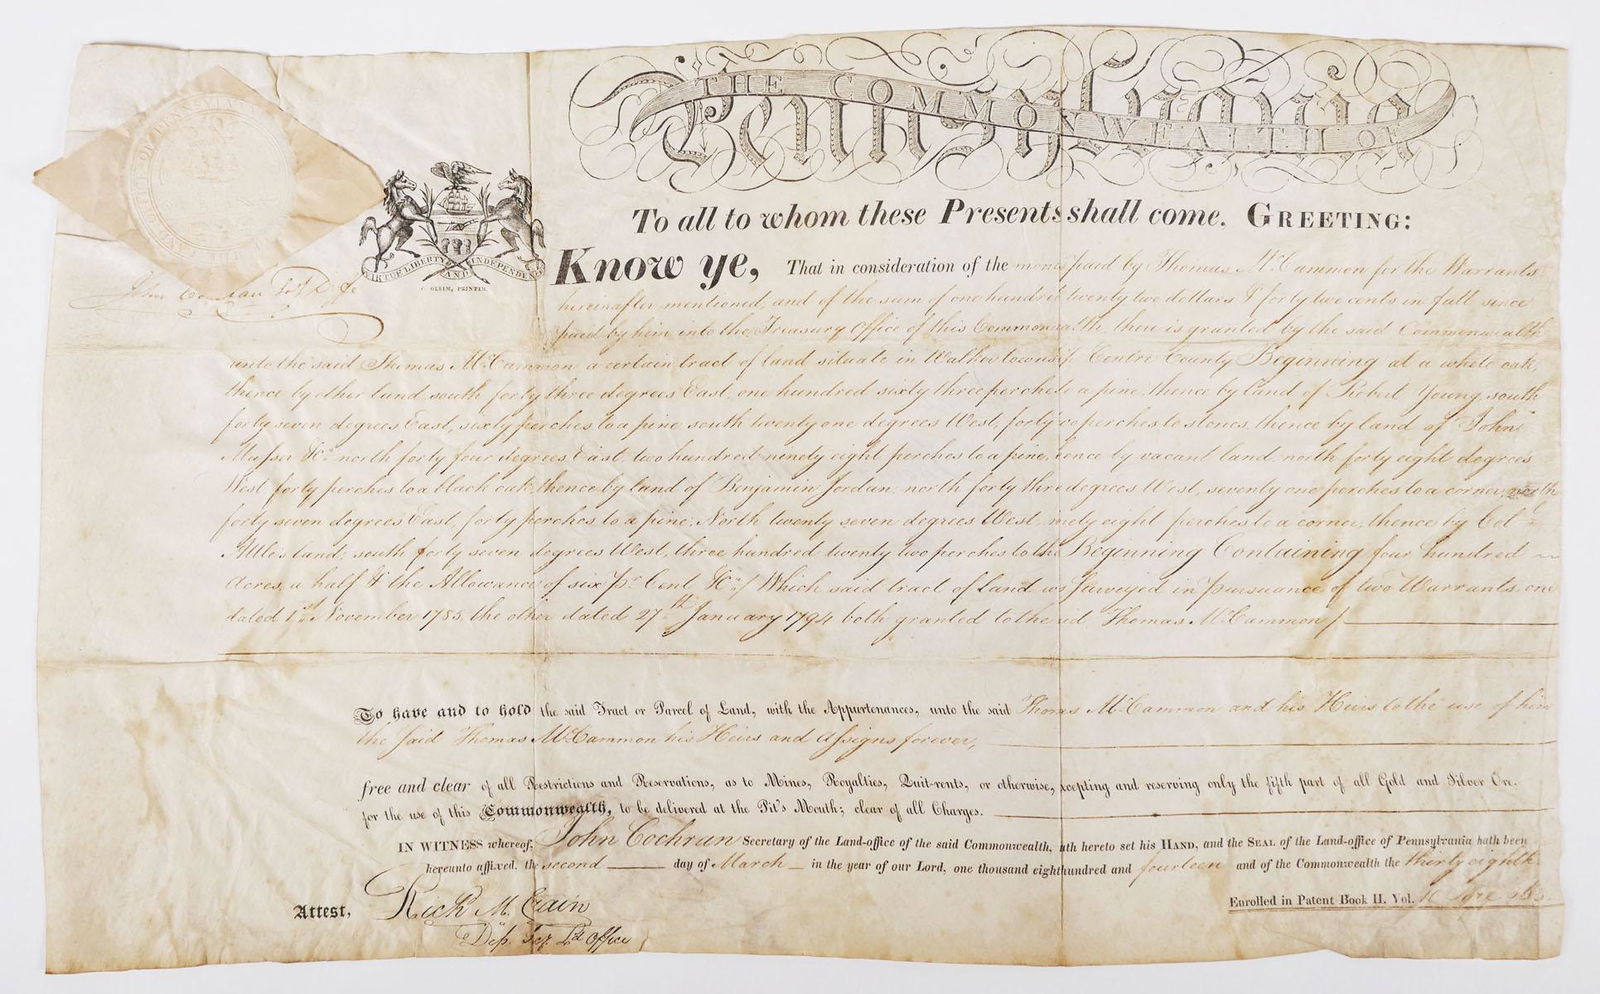 THE COMMONWEALTH OF
Pennsylvania
To all to whom these Presents shall come, GREETING:
VIRTUE LIBERTY AND INDEPENDENCE
C. GLEIM, PRINTER
John Cochran
Know ye, That in consideration of the money paid by Thomas McCammon for the Warrants
hereinafter mentioned, and of the sum of one hundred twenty two dollars & forty two cents in full since
paid by him into the Treasury Office of this Commonwealth, there is granted by the said Commonwealth
unto the said Thomas McCammon a certain tract of land situate in Walker township Centre County Beginning at a white oak,
thence by other land south forty three degrees East, one hundred sixty three perches to a pine, thence by land of Robert Young, south
forty seven degrees East, sixty perches to a pine south twenty one degrees West, forty perches to stones, thence by land of John
Musser &c. north forty four degrees East, two hundred ninety eight perches to a pine, thence by vacant land, north forty eight degrees
West, forty perches to a black oak, thence by land of Benjamin Jordan, north forty three degrees West, seventy one perches to a corner, north
forty seven degrees East, forty perches to a pine, North twenty seven degrees West, ninety eight perches to a corner, thence by Col
land, south forty seven degrees West, three hundred twenty two perches to the Beginning Containing four hundred
Acres, a half & the Allowance of six pr. Cent &c. / Which said tract of land was surveyed in pursuance of two Warrants, one
dated 1st November 1785, the other dated 27th January 1794 both granted to the said Thomas McCammon /
To have and to hold the said Tract or Parcel of Land, with the Appurtenances, unto the said Thomas McCammon and his Heirs to the use of him
the said Thomas McCammon his Heirs and Assigns forever,
free and clear of all Restrictions and Reservations, as to Mines, Royalties, Quit-rents, or otherwise, excepting and reserving only the fifth part of all Gold and Silver Ore.
for the use of this Commonwealth, to be delivered at the Pit's Mouth; clear of all Charges.
IN WITNESS whereof, John Cochran Secretary of the Land-office of the said Commonwealth, hath hereto set his HAND, and the SEAL of the Land-office of Pennsylvania hath been
hereunto affixed, the second day of March in the year of our Lord, one thousand eight hundred and fourteen and of the Commonwealth the thirty eighth.
Enrolled in Patent Book H, Vol.
Attest, Rich M. Crain
Dep. Sec. Ld. Office